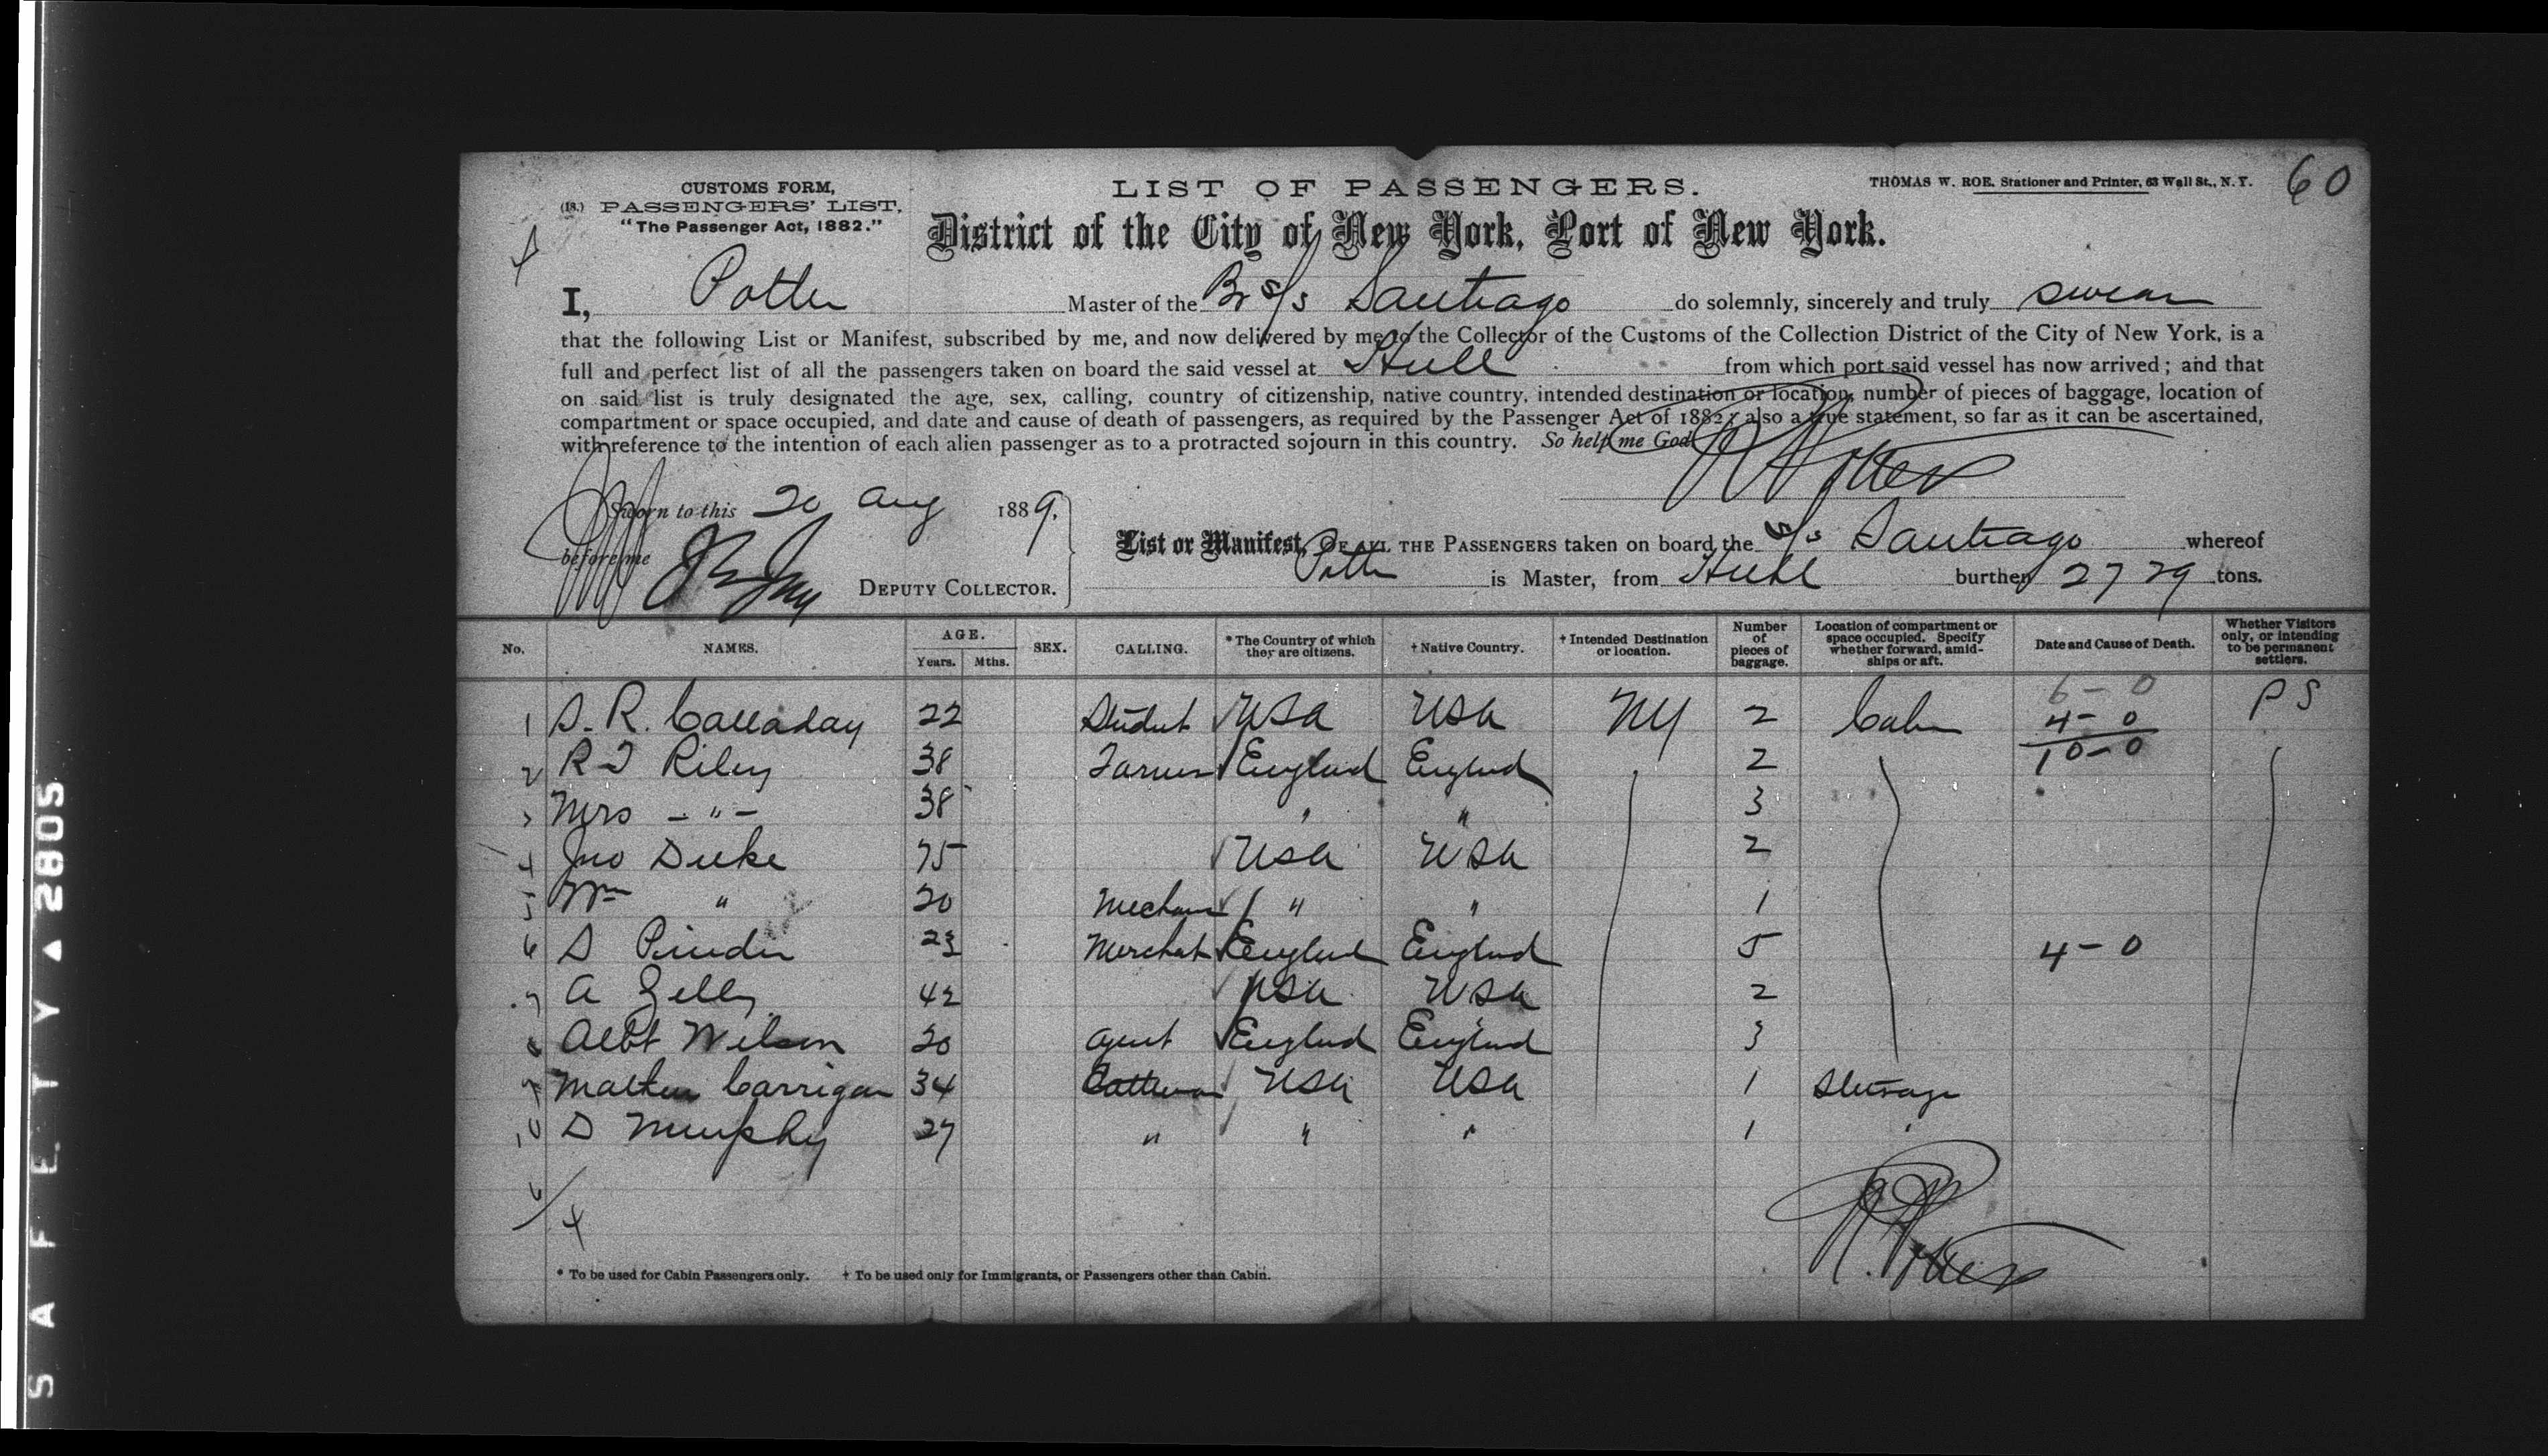 60
CUSTOMS FORM,
(18.) PASSENGERS' LIST,
"The Passenger Act, 1882."
LIST OF PASSENGERS.
THOMAS W. ROE, Stationer and Printer, 63 Wall St., N.Y.
District of the City of New York, Port of New York.
I, Potter Master of the Br s/s Santiago do solemnly, sincerely and truly swear
that the following List or Manifest, subscribed by me, and now delivered by me to the Collector of the Customs of the Collection District of the City of New York, is a
full and perfect list of all the passengers taken on board the said vessel at Hull from which port said vessel has now arrived; and that
on said list is truly designated the age, sex, calling, country of citizenship, native country, intended destination or location, number of pieces of baggage, location of
compartment or space occupied, and date and cause of death of passengers, as required by the Passenger Act of 1882; also a true statement, so far as it can be ascertained,
with reference to the intention of each alien passenger as to a protracted sojourn in this country. So help me God
Sworn to this 20 Aug 1889.
before me
DEPUTY COLLECTOR.
List or Manifest, OF ALL THE PASSENGERS taken on board the s/s Santiago whereof
Potter is Master, from Hull burthen 2729 tons.
No. NAMES. AGE. Years. Mths. SEX. CALLING. * The Country of which they are citizens. † Native Country. † Intended Destination or location. Number of pieces of baggage. Location of compartment or space occupied. Specify whether forward, amidships or aft. Date and Cause of Death. Whether Visitors only, or intending to be permanent settlers.
6-0
1 S. R. Calladay 22 Student USA USA NY 2 Cabin 4-0 PS
10-0
2 R T Riley 38 Farmer England England 2
3 Mrs - " - 38 " " 3
4 Jno Duke 75 USA USA 2
5 Wm " 20 Mechanic " " 1
6 S Pinder 23 Merchat England England 5 4-0
7 A Zelly 42 USA USA 2
8 Albt Wilson 20 agent England England 3
9 Matthew Carrigan 34 Cattleman USA USA 1 Steerage
10 D Murphy 27 " " " 1 "
6/4
* To be used for Cabin Passengers only. † To be used only for Immigrants, or Passengers other than Cabin.
SAFETY ▲ 2805